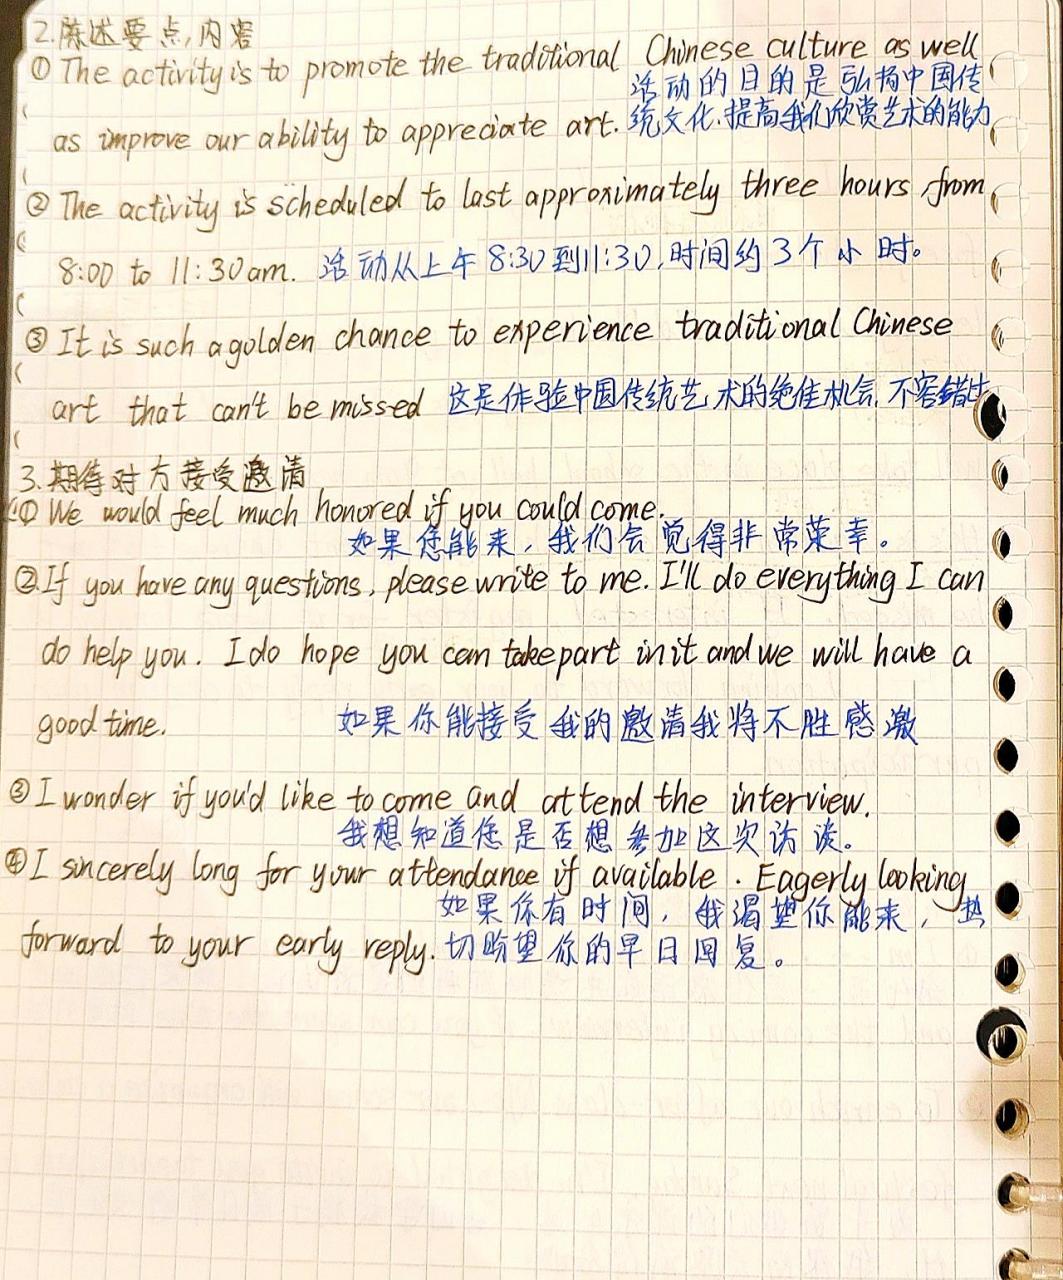 2.陈述要点,内容
① The activity is to promote the traditional Chinese culture as well
活动的目的是弘扬中国传
as improve our ability to appreciate art. 统文化,提高我们欣赏艺术的能力
② The activity is scheduled to last approximately three hours from
8:00 to 11:30am. 活动从上午8:30到11:30,时间约3个小时。
③ It is such a golden chance to experience traditional Chinese
art that can't be missed 这是体验中国传统艺术的绝佳机会,不容错过
3.期待对方接受邀请
① We would feel much honored if you could come.
如果您能来,我们会觉得非常荣幸。
②If you have any questions, please write to me. I'll do everything I can
do help you. I do hope you can take part in it and we will have a
good time. 如果你能接受我的邀请我将不胜感激
③ I wonder if you'd like to come and attend the interview.
我想知道您是否想参加这次访谈。
④ I sincerely long for your attendance if available. Eagerly looking
如果你有时间,我渴望你能来,热
forward to your early reply. 切盼望你的早日回复。